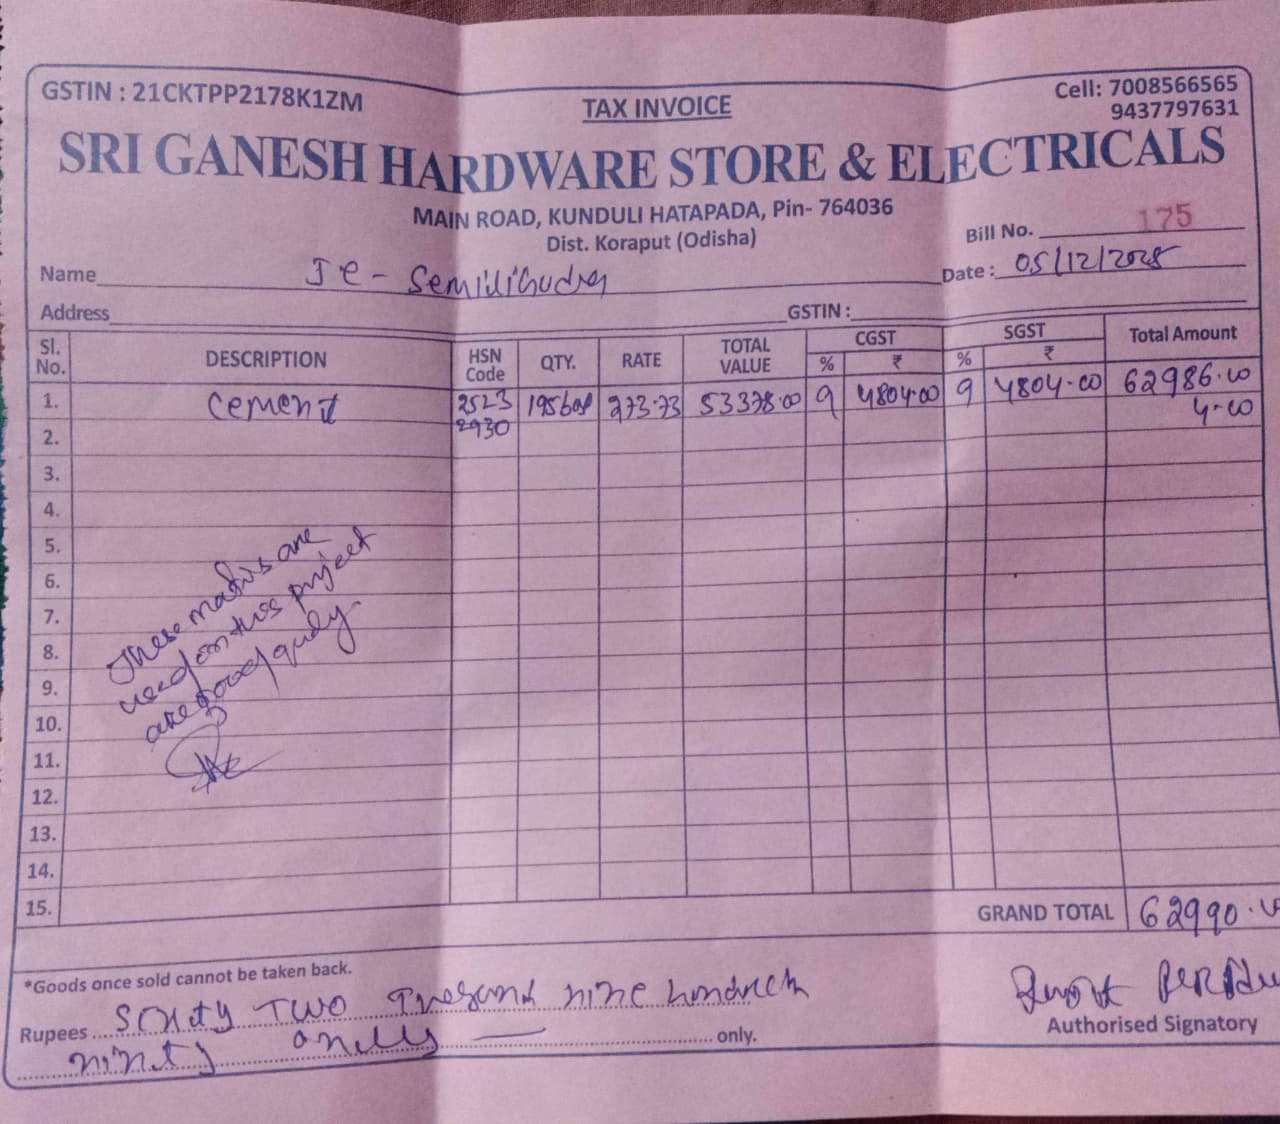 GSTIN : 21CKTPP2178K1ZM
TAX INVOICE
Cell: 7008566565
9437797631
SRI GANESH HARDWARE STORE & ELECTRICALS
MAIN ROAD, KUNDULI HATAPADA, Pin- 764036
Dist. Koraput (Odisha)
Bill No. 175
Name Je - Semiliguda
Date : 05/12/2025
Address
GSTIN :
Sl. No. DESCRIPTION HSN Code QTY. RATE TOTAL VALUE CGST % ₹ SGST % ₹ Total Amount
1. Cement 2523 195 273.73 53378.00 9 4804.00 9 4804.00 62986.00
2. 2930 4.00
3.
4.
5.
6.
7.
8.
9.
10.
11.
12.
13.
14.
15.
These are
used on this project
are good
GRAND TOTAL 62990.00
*Goods once sold cannot be taken back.
Rupees Sixty Two Thousand nine hundred
ninty only.
Authorised Signatory